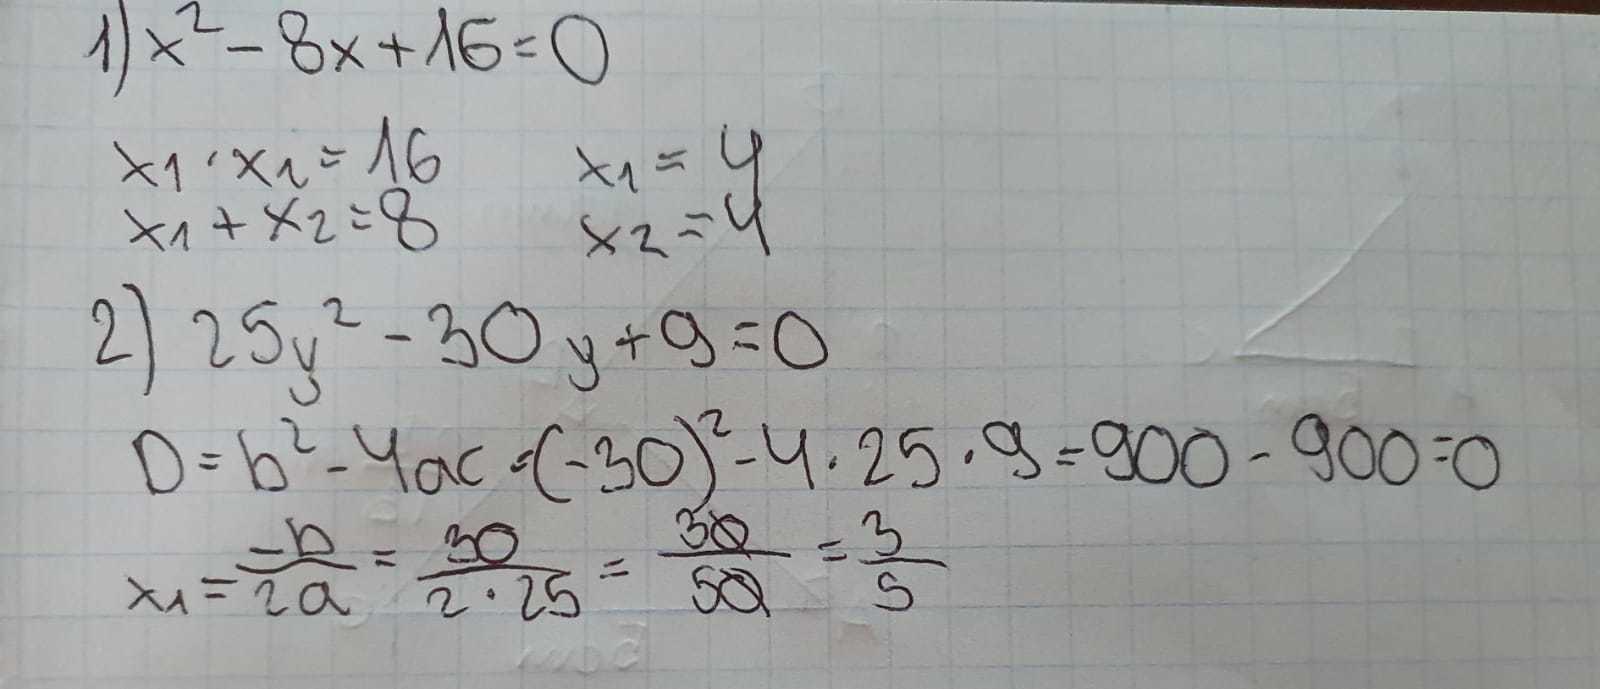 1) x² - 8x + 16 = 0
x1 · x2 = 16 x1 = 4
x1 + x2 = 8 x2 = 4
2) 25y² - 30y + 9 = 0
D = b² - 4ac = (-30)² - 4 · 25 · 9 = 900 - 900 = 0
x1 = -b/2a = 30/2·25 = 30/50 = 3/5